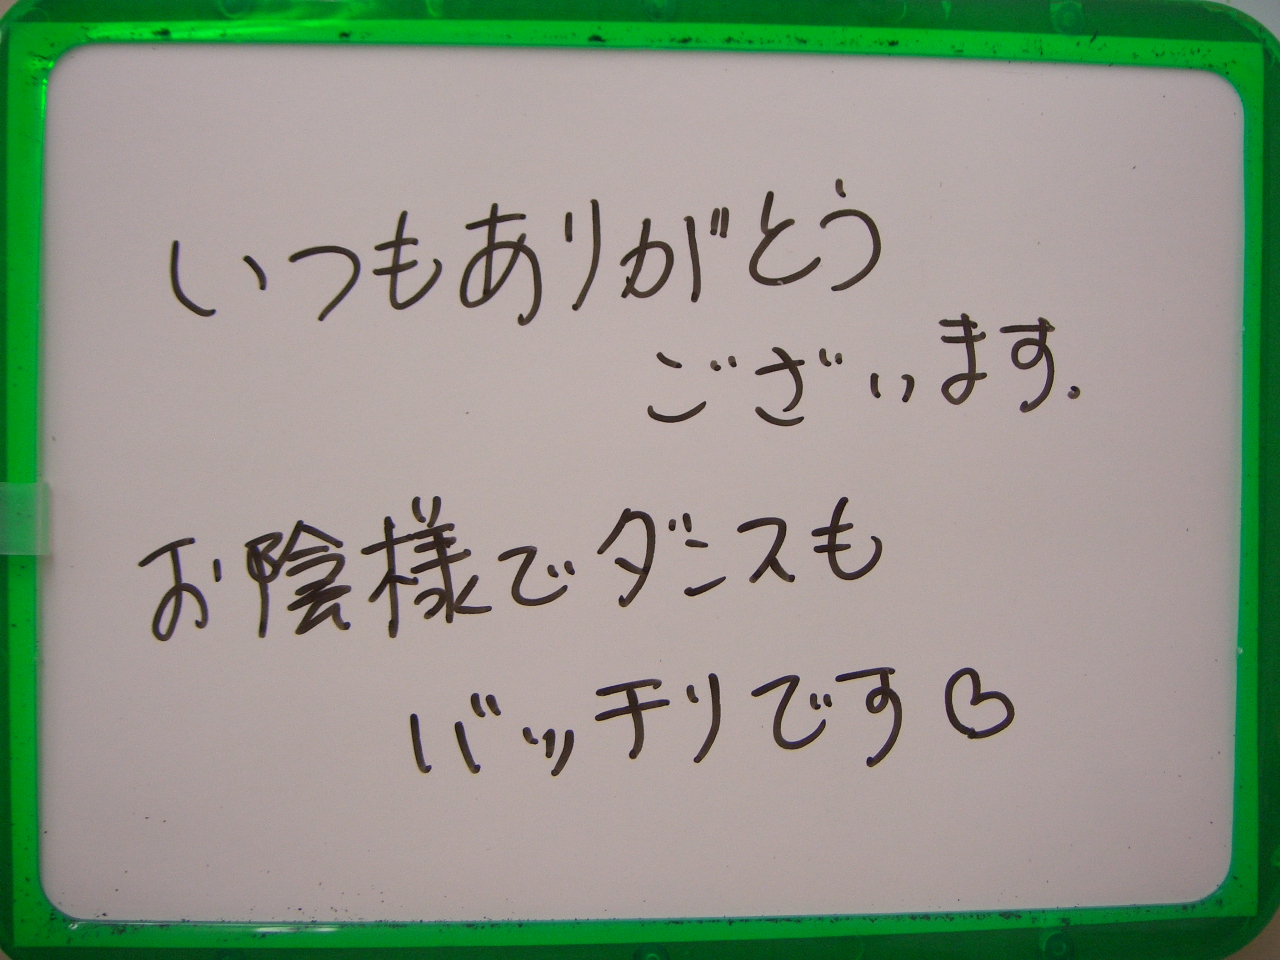 いつもありがとう
ございます.
お陰様でダンスも
バッチリです♡